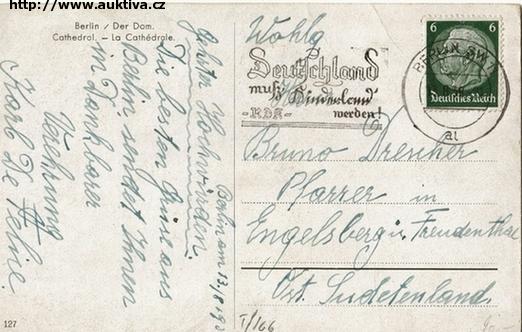 http://www.auktiva.cz
Berlin / Der Dom.
Cathedral. – La Cathédrale.
Berlin am 13/8 193
Geehrter Hochwürden.
Die besten Grüse aus
Berlin sendet Ihnen
in Dankbarer
Verehrung
Karl De
127
Wohlg
Deutschland
muß Kinderland
-KDK- werden!
BERLIN SW
al
6 6
Deutsches Reich
Bruno Drescher
Pfarrer in
Engelsberg i. Freudenthal
Ost. Sudetenland.
T/166